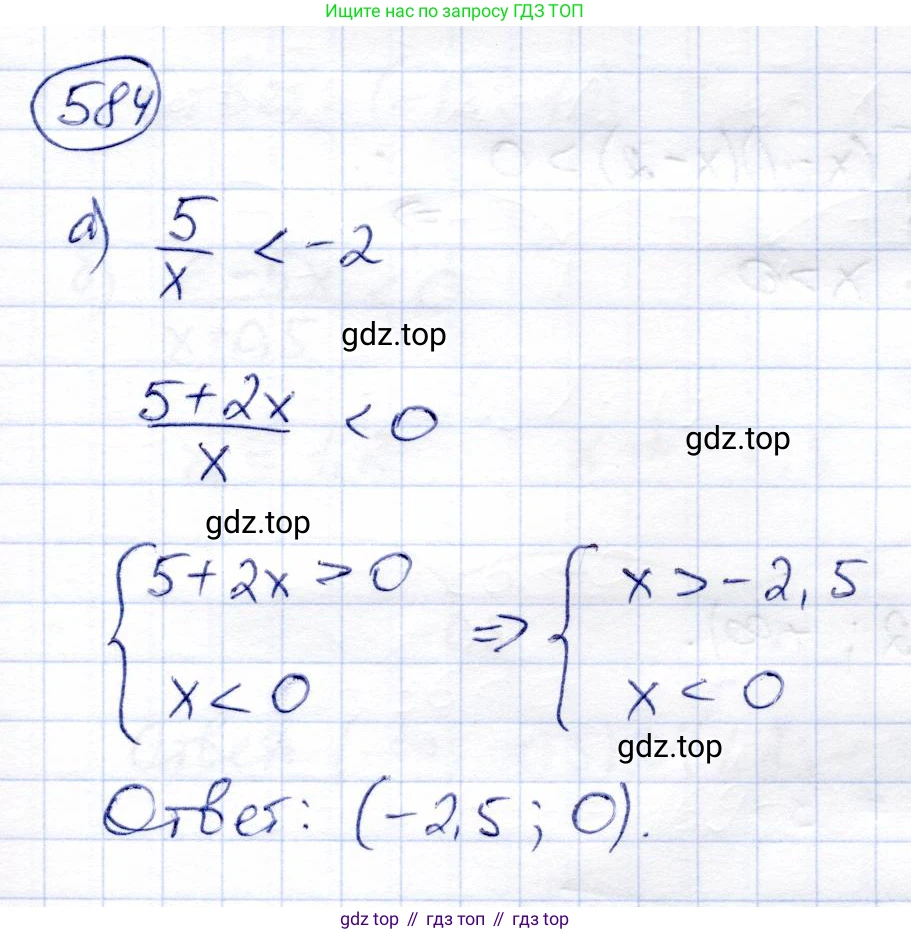 Ищите нас по запросу ГДЗ ТОП
584
а) 5/x < -2
gdz.top
(5+2x)/x < 0
gdz.top
gdz.top
{ 5+2x > 0 => { x > -2,5
x < 0 x < 0
gdz.top
Ответ: (-2,5; 0).
gdz top // гдз топ // gdz top